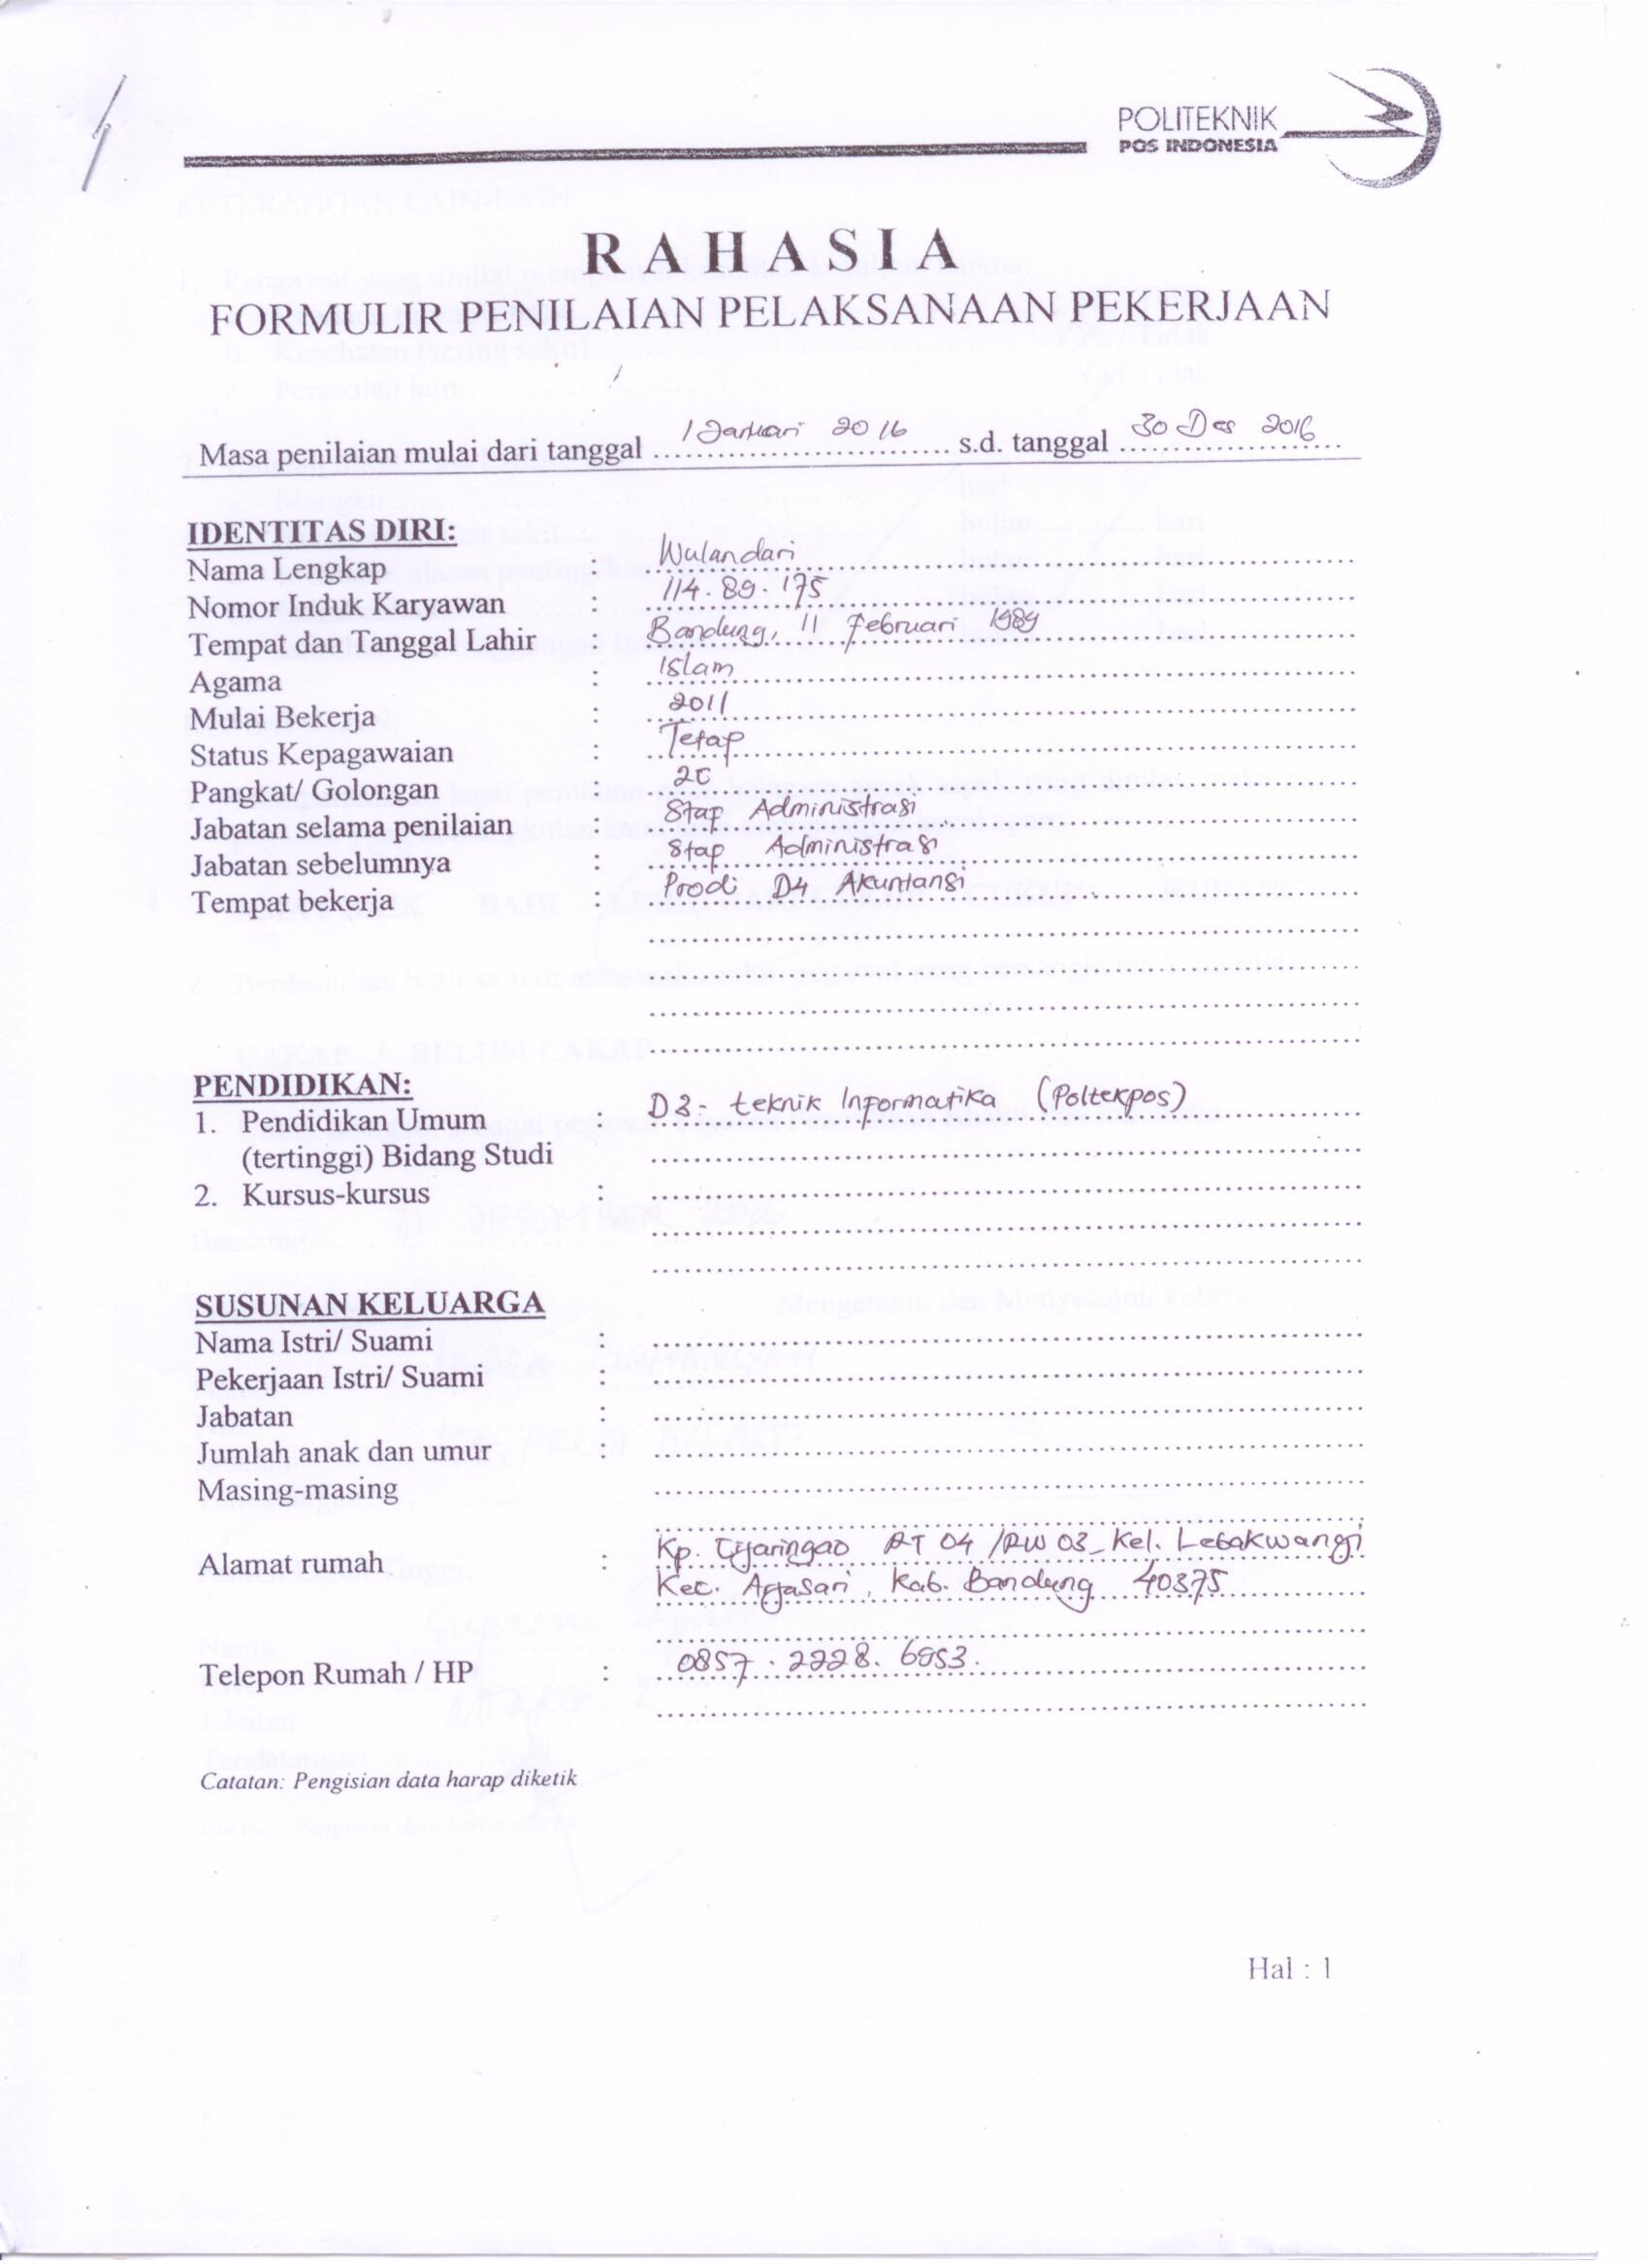 POLITEKNIK
POS INDONESIA
RAHASIA
FORMULIR PENILAIAN PELAKSANAAN PEKERJAAN
Masa penilaian mulai dari tanggal 1 Januari 2016 s.d. tanggal 30 Des 2016
IDENTITAS DIRI:
Nama Lengkap : Wulandari
Nomor Induk Karyawan : 114.89.175
Tempat dan Tanggal Lahir : Bandung, 11 Februari 1989
Agama : Islam
Mulai Bekerja : 2011
Status Kepagawaian : Tetap
Pangkat/ Golongan : 2C
Jabatan selama penilaian : Stap Administrasi
Jabatan sebelumnya : Stap Administrasi
Tempat bekerja : Prodi D4 Akuntansi
PENDIDIKAN:
1. Pendidikan Umum : D3 - teknik Informatika (Poltekpos)
(tertinggi) Bidang Studi
2. Kursus-kursus :
SUSUNAN KELUARGA
Nama Istri/ Suami :
Pekerjaan Istri/ Suami :
Jabatan :
Jumlah anak dan umur :
Masing-masing
Alamat rumah : Kp. RT 04 /RW 03 - Kel. Lebakwangi
Kec. Arjasari, Kab. Bandung 40375
Telepon Rumah / HP : 0857.2228.6853.
Catatan: Pengisian data harap diketik
Hal : 1